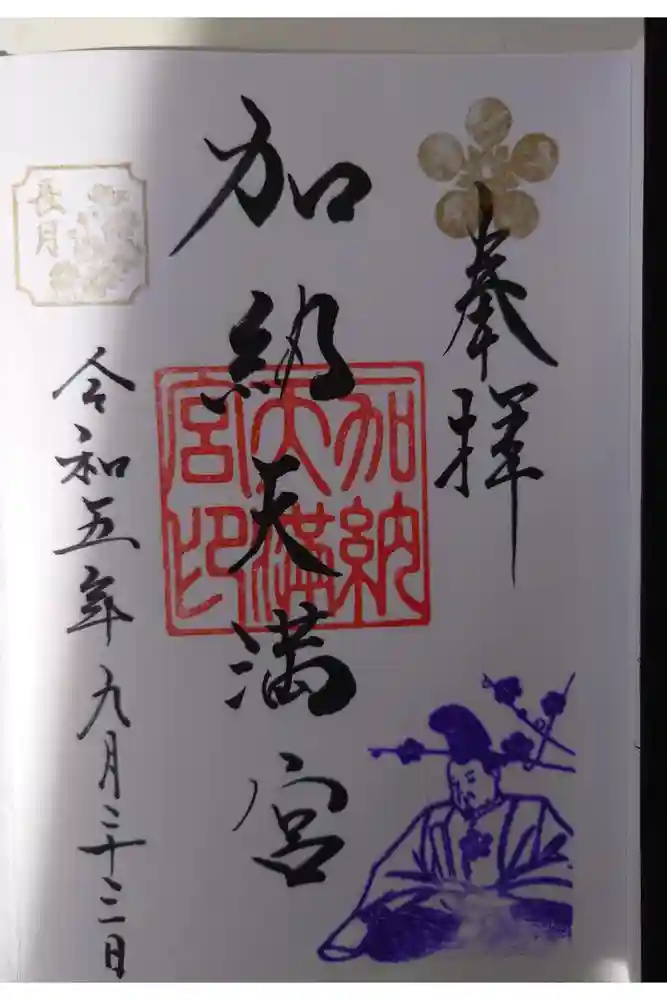 奉拝
加納天満宮
加納
天満
宮印
長月
令和五年九月二十三日